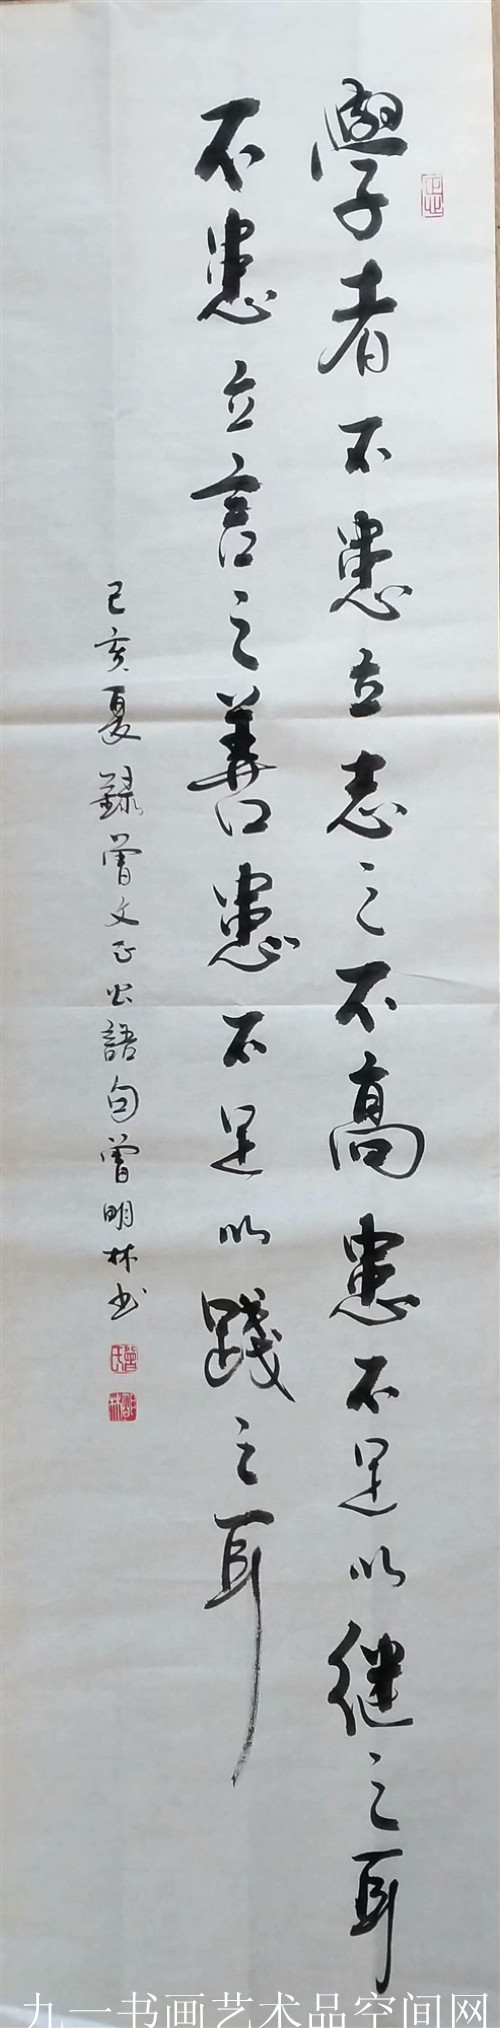 學者不患立志之不高患不足以继之耳
不患立言之善患不足以踐之耳
己亥夏録曾文正公語句曾明林书
曾氏
九一书画艺术品空间网